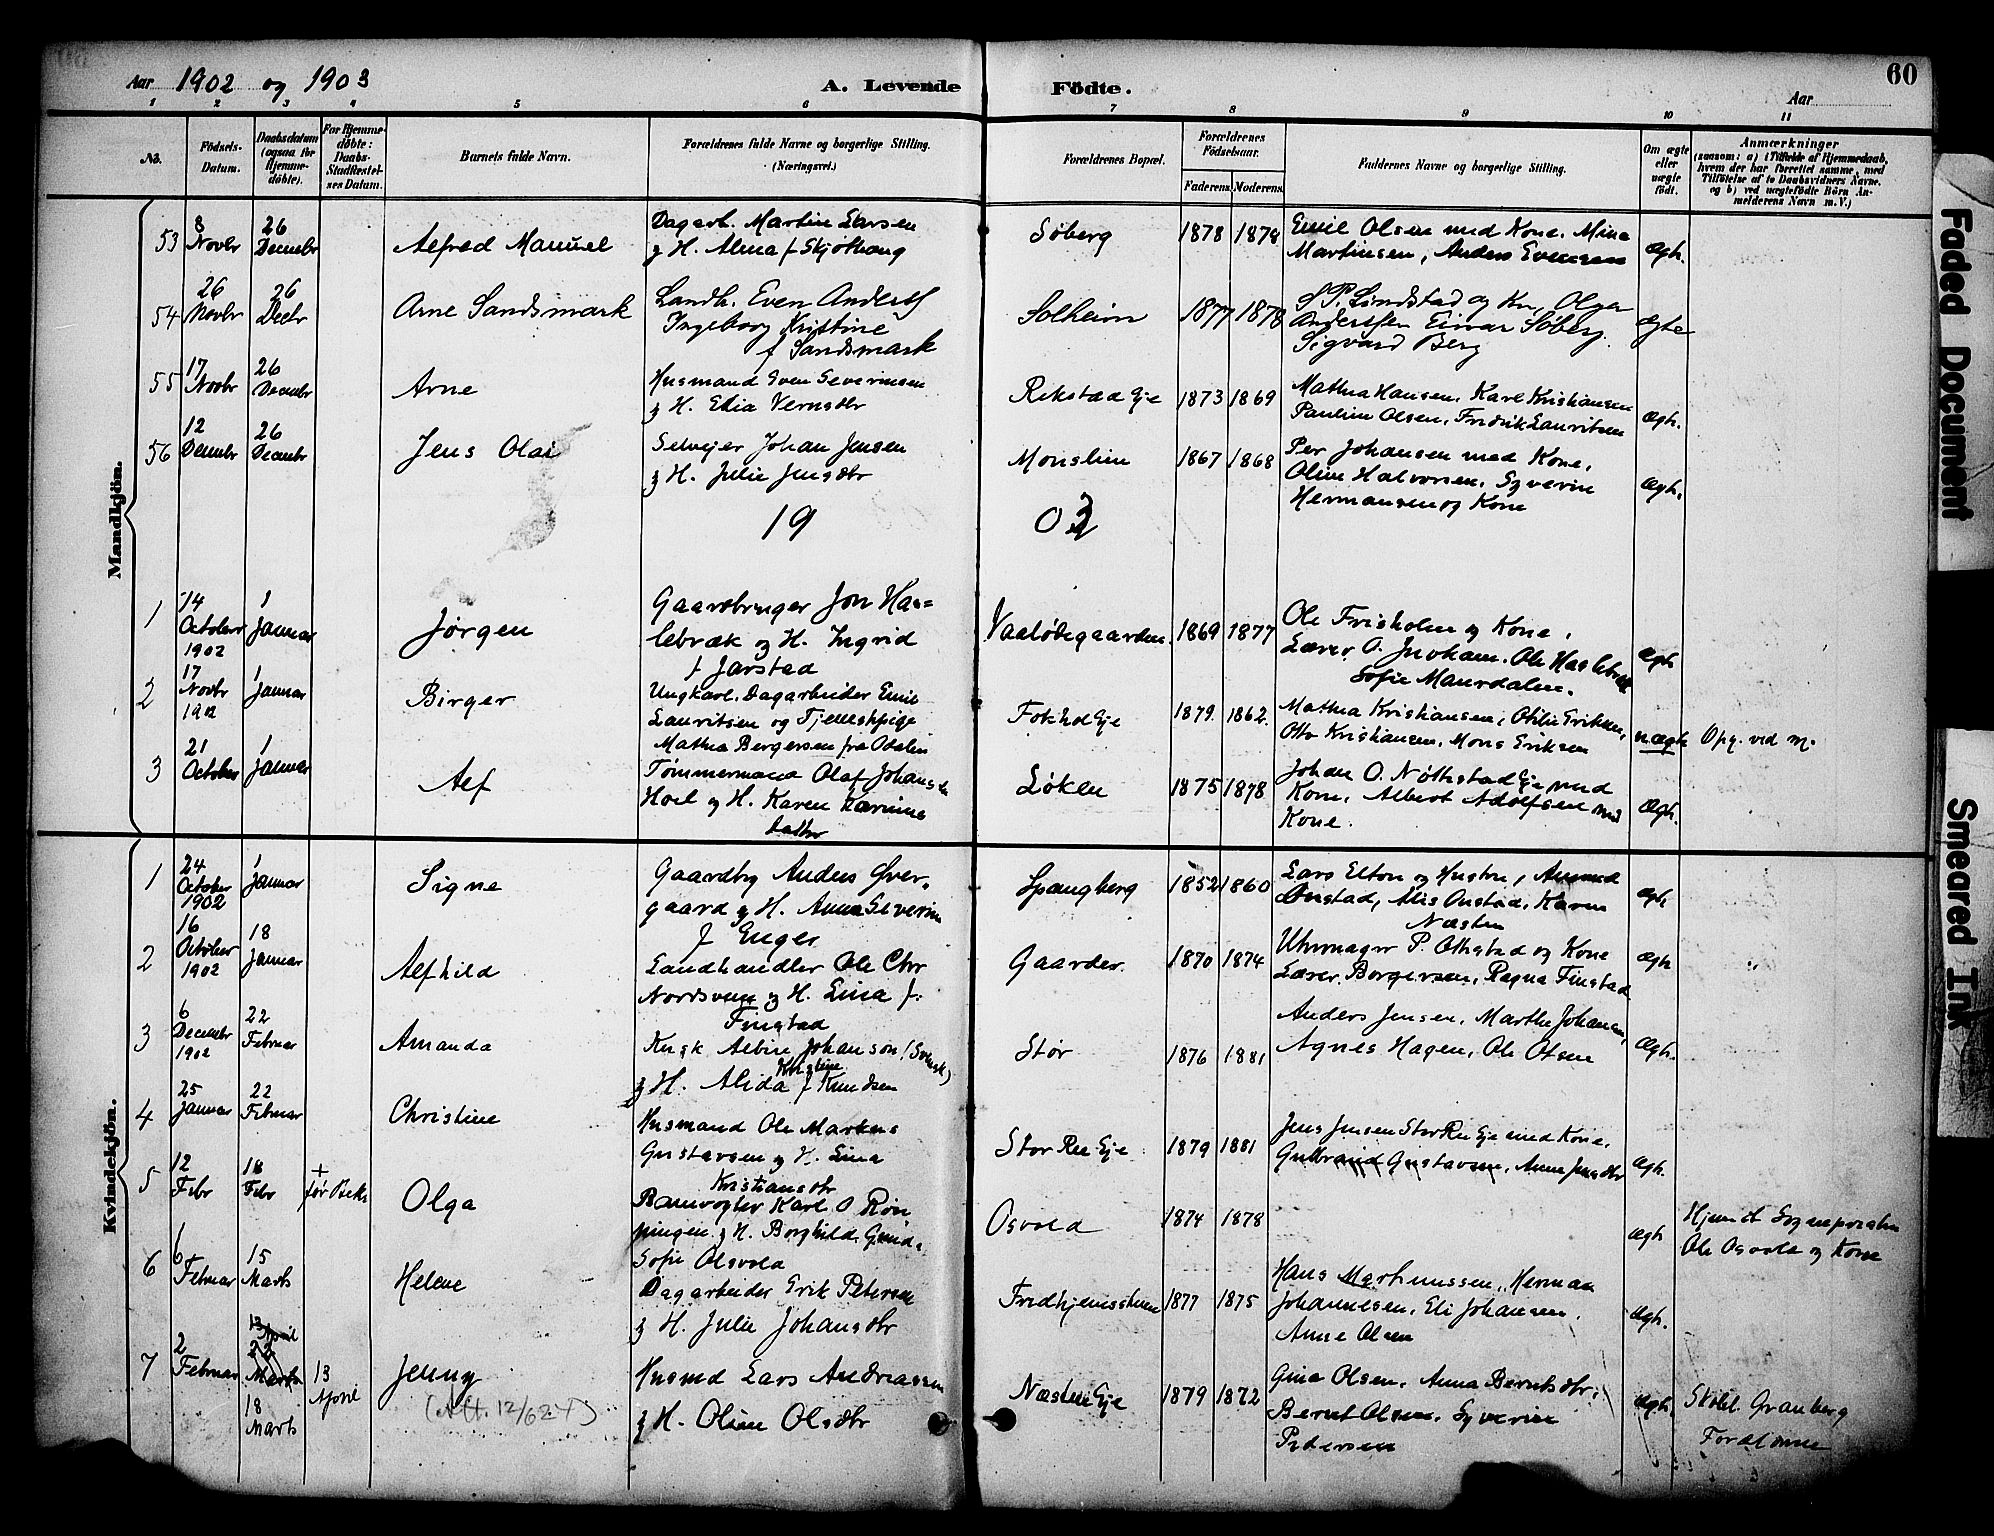 60
Aar 1902 og 1903
A. Levende Födte.
Aar
1 2 3 4 5 6 7 8 9 10 11
No.
Födsels-Datum.
Daabsdatum (ogsaa for Hjemme-döbte).
For Hjemme-döbte: Daabs-Stadfæstel-ses Datum.
Barnets fulde Navn.
Forældrenes fulde Navne og borgerlige Stilling. (Næringsvei.)
Forældrenes Bopæl.
Forældrenes Födselsaar.
Faderens. Moderens.
Faddernes Navne og borgerlige Stilling.
Om ægte eller uægte födt.
Anmærkninger
(saasom: a) i Tilfælde af Hjemmedaab, hvem der har forrettet samme, med Tilföielse af to Daabsvidners Navne, og b) ved uægtefödte Börn An-melderens Navn m.V.)
Mandkjön.
53 8 Novbr 26 Decembr Alfred Manuel
Dagarb. Martin Larsen
g H. Alma f Skjøthaug
Søberg 1878 1878
Emil Olsen med Kone. Mina
Martinsen, Anders Evensen
ægh.
54 26 Novbr 26 Decbr Arne Sandsmark
Landh. Even Anderss
Ingeborg Kristine
f Sandsmark
Solheim 1877 1878
S P. Lundstad og Kn, Olga
Anderssen Einar Søberg.
Sigvard Berg
ægte
55 17 Novbr 26 Decembr Arne
Husmand Even Severinsen
g H. Elia Vernsdtr
Rikstad Eje 1873 1869
Mathea Hansen, Karl Kristiansen
Pauline Olsen, Fredrik Lauritsen
ægh.
56 12 Decembr 26 Decembr Jens Olai
Selvejer Johan Jensen
g H. Julie Jensdtr
Monslien 1867 1868
Per Johansen med Kone,
Oline Halvorsen, Syverin
Hermansen og Kone
ægh.
19 03
1 14 October 1902 1 Januar Jørgen
Gaardbruger Jon Has=
lebræk og H. Ingrid
f Jarstad
Vaalødegaarden. 1869 1877
Ole Frisholm og Kone,
Lærer O. Ole Haslebræk
Sofie Maurdalen.
ægh
2 17 Novbr 1902 1 Januar Birger
Ungkarl. Dagarbeider Emil
Lauritsen og Tjenestepige
Mathea Bergersen fra Odalen
Eje 1879. 1862.
Mathea Kristiansen, Otilie Eriksen,
Otto Kristiansen, Mons Eriksen
uægh Opg. ved m.
3 21 October 1 Januar Alf
Tømmermand Olaf Johansen
Hoel og H. Karen Karinius
datter
Løken 1875 1878
Johan O. Nøthstad Eje med
Kone, Albert Adolfsen med
Kone.
ægh.
Kvindekjön.
1 24 October 1902 1 Januar Signe
Gaardbg Anders Øver,
gaard g H. Anna Severin
f Enger
Spangberg 1852 1860
Lars Elton og Hustru, Amund
Onstad, Alis Onstad, Karen
Næsten
ægh
2 16 October 1902 18 Januar Alfhild
Landhandler Ole Chr
Nordsveen g H. Lina f.
Finstad
Gaarder. 1870 1874
Uhrmager P. Othstad og Kone
Lærer Borgersen, Ragna Finstad
ægh
3 6 Decembr 1902 22 Februar Amanda
Kusk Albin Johanson (Svensk)
g H. Alida Kristine f Knudsen
Stør 1876 1881
Anders Jensen, Marthe Johansen,
Agnes Hagen, Ole Olsen
ægh.
4 25 Januar 22 Februar Christine
Husmand Ole Markus
Gustavsen g H. Lina
Kristiansdtr
Stor Ree Eje 1879 1881
Jens Jensen Stor Ree Eje med Kone,
Gulbrand Gustavsen, Anne Jensdtr
ægh.
5 12 Febr 18 Febr + før Bek Olga
Banevogter Karl O Røn
ningen g H. Borghild Gunda
Sofie Olsvold
Osvold 1874 1878
ægh
Hjemdt Sogneprosten
Ole Osvold og Kone
6 6 Februar 15 Marts Helene
Dagarbeider Erik Petersen
g H. Julie Johansdtr
Fredhjemsstuen 1877 1875
Hans Marthinussen, Herman
Johannesen, Eli Johansen,
Anne Olsen
ægh.
7 2 Februar 13 April 22 Marts 18 Marts 13 April Jenny
(Att. 12/62 T)
Husmd Lars Andreassen
g H. Oline Olsdtr
Næsten Eje 1879 1872
Gina Olsen, Anna Berntsdtr,
Bernt Olsen, Syverin
Pedersen
ægh.
Skoll. Granberg
Foraldrene
Faded Document
Smeared Ink